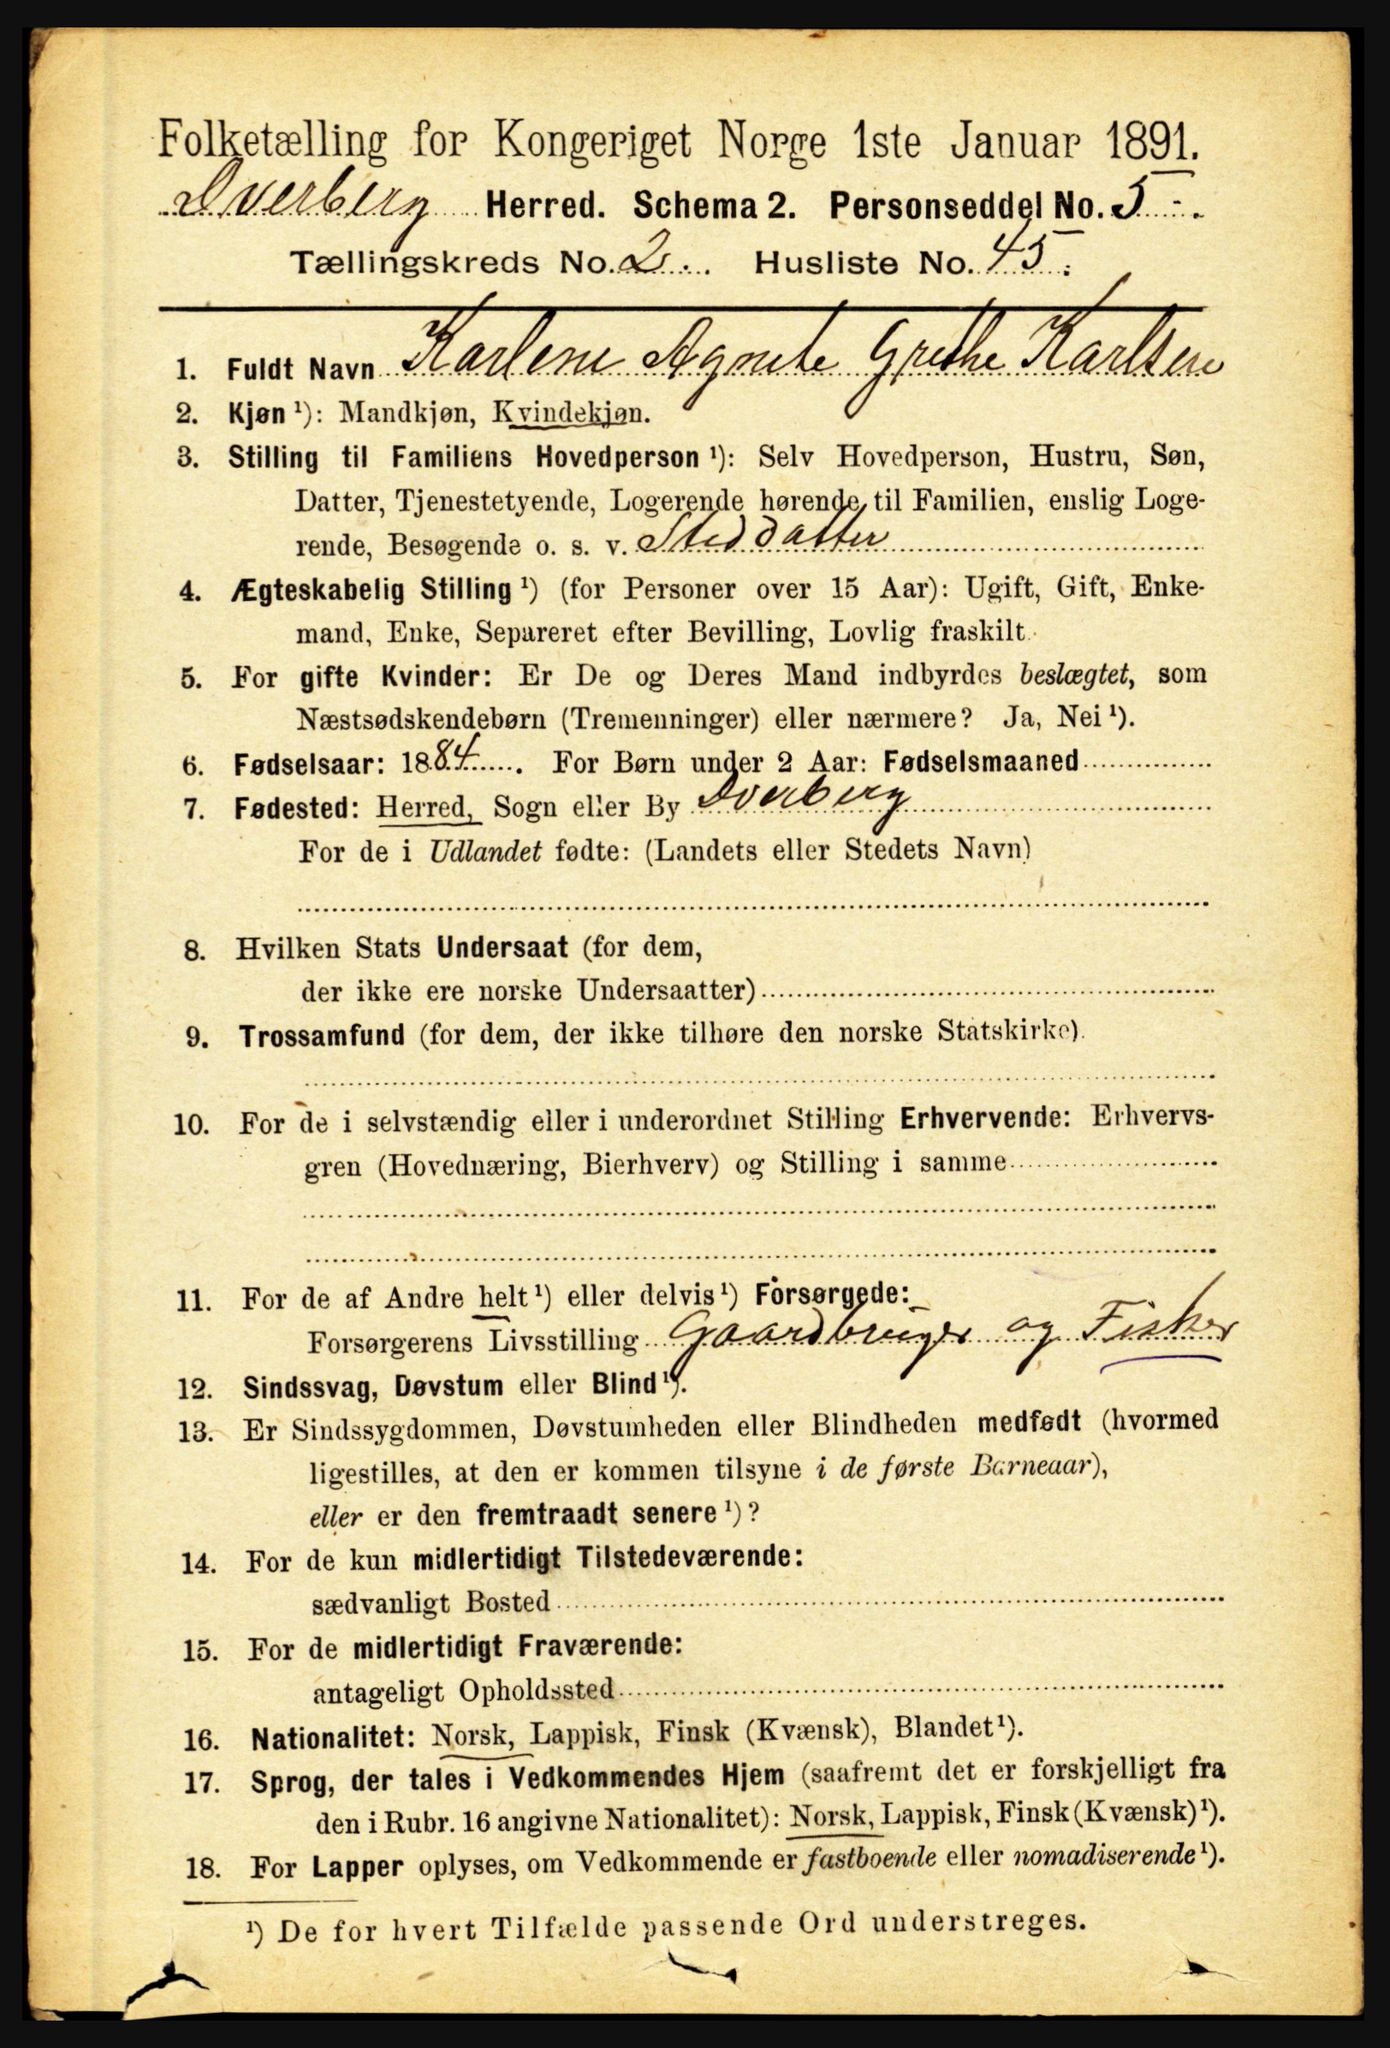 Folketælling for Kongeriget Norge 1ste Januar 1891.
Dverberg Herred. Schema 2. Personseddel No. 5
Tællingskreds No. 2. Husliste No. 45.
1. Fuldt Navn Karlene Agnete Grethe Karlsen
2. Kjøn ¹): Mandkjøn, Kvindekjøn.
3. Stilling til Familiens Hovedperson ¹): Selv Hovedperson, Hustru, Søn,
Datter, Tjenestetyende, Logerende hørende til Familien, enslig Loge-
rende, Besøgende o. s. v. Steddatter
4. Ægteskabelig Stilling ¹) (for Personer over 15 Aar): Ugift, Gift, Enke-
mand, Enke, Separeret efter Bevilling, Lovlig fraskilt.
5. For gifte Kvinder: Er De og Deres Mand indbyrdes beslægtet, som
Næstsødskendebørn (Tremenninger) eller nærmere? Ja, Nei ¹).
6. Fødselsaar: 1884. For Børn under 2 Aar: Fødselsmaaned
7. Fødested: Herred, Sogn eller By Dverberg
For de i Udlandet fødte: (Landets eller Stedets Navn)
8. Hvilken Stats Undersaat (for dem,
der ikke ere norske Undersaatter)
9. Trossamfund (for dem, der ikke tilhøre den norske Statskirke).
10. For de i selvstændig eller i underordnet Stilling Erhvervende: Erhvervs-
gren (Hovednæring, Bierhverv) og Stilling i samme
11. For de af Andre helt ¹) eller delvis ¹) Forsørgede:
Forsørgerens Livsstilling Gaardbruger og Fisker
12. Sindssvag, Døvstum eller Blind ¹).
13. Er Sindssygdommen, Døvstumheden eller Blindheden medfødt (hvormed
ligestilles, at den er kommen tilsyne i de første Barneaar),
eller er den fremtraadt senere ¹)?
14. For de kun midlertidigt Tilstedeværende:
sædvanligt Bosted
15. For de midlertidigt Fraværende:
antageligt Opholdssted
16. Nationalitet: Norsk, Lappisk, Finsk (Kvænsk), Blandet ¹).
17. Sprog, der tales i Vedkommendes Hjem (saafremt det er forskjelligt fra
den i Rubr. 16 angivne Nationalitet): Norsk, Lappisk, Finsk (Kvænsk) ¹).
18. For Lapper oplyses, om Vedkommende er fastboende eller nomadiserende ¹).
¹) De for hvert Tilfælde passende Ord understreges.